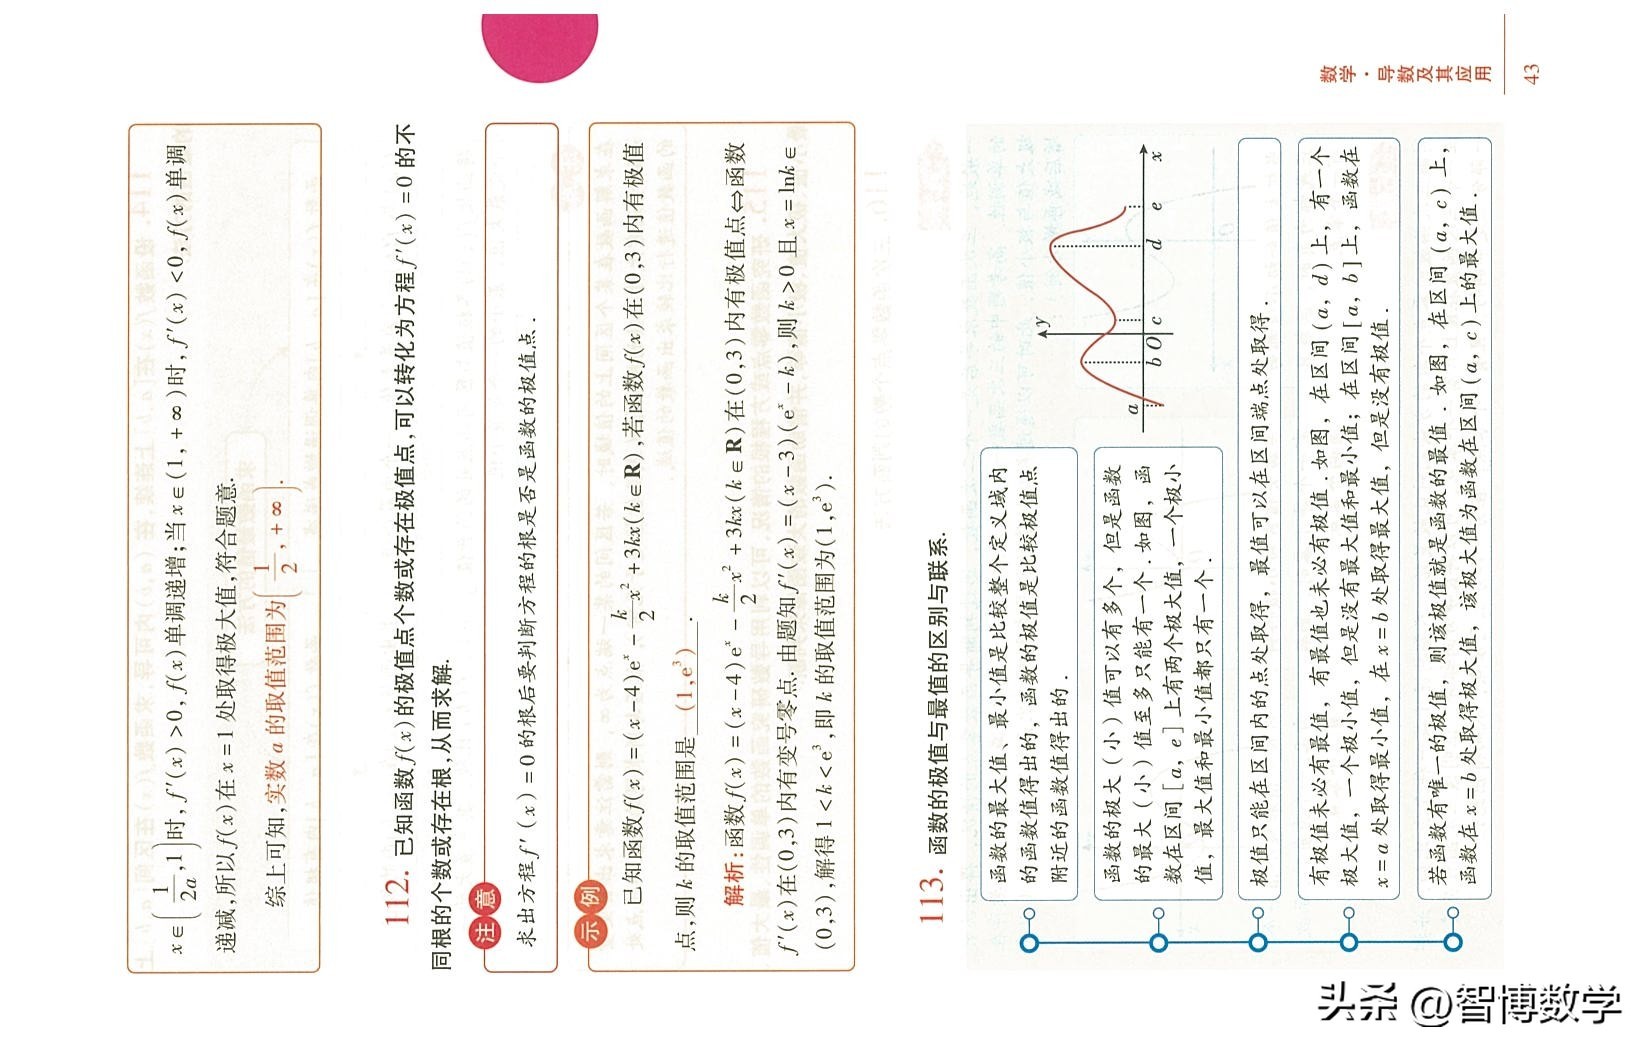 x∈(1/2a,1)时,f′(x)>0,f(x)单调递增;当x∈(1,+∞)时,f′(x)<0,f(x)单调
递减,所以f(x)在x=1处取得极大值,符合题意.
综上可知,实数a的取值范围为(1/2,+∞).
112. 已知函数f(x)的极值点个数或存在极值点,可以转化为方程f′(x)=0的不
同根的个数或存在根,从而求解.
注意
求出方程f′(x)=0的根后要判断方程的根是否是函数的极值点.
示例
已知函数f(x)=(x-4)eˣ-k/2x²+3kx(k∈R),若函数f(x)在(0,3)内有极值
点,则k的取值范围是 (1,e³) .
解析:函数f(x)=(x-4)eˣ-k/2x²+3kx(k∈R)在(0,3)内有极值点⇔函数
f′(x)在(0,3)内有变号零点.由题知f′(x)=(x-3)(eˣ-k),则k>0且x=lnk∈
(0,3),解得1<k<e³,即k的取值范围为(1,e³).
113. 函数的极值与最值的区别与联系.
函数的最大值、最小值是比较整个定义域内
的函数值得出的,函数的极值是比较极值点
附近的函数值得出的.
函数的极大(小)值可以有多个,但是函数
的最大(小)值至多只能有一个.如图,函
数在区间[a,e]上有两个极大值,一个极小
值,最大值和最小值都只有一个.
y
a
b
O
c
d
e
x
极值只能在区间内的点处取得,最值可以在区间端点处取得.
有极值未必有最值,有最值也未必有极值.如图,在区间(a,d)上,有一个
极大值,一个极小值,但是没有最大值和最小值;在区间[a,b]上,函数在
x=a处取得最小值,在x=b处取得最大值,但是没有极值.
若函数有唯一的极值,则该极值就是函数的最值.如图,在区间(a,c)上,
函数在x=b处取得极大值,该极大值为函数在区间(a,c)上的最大值.
数学·导数及其应用
43
头条 @智博数学